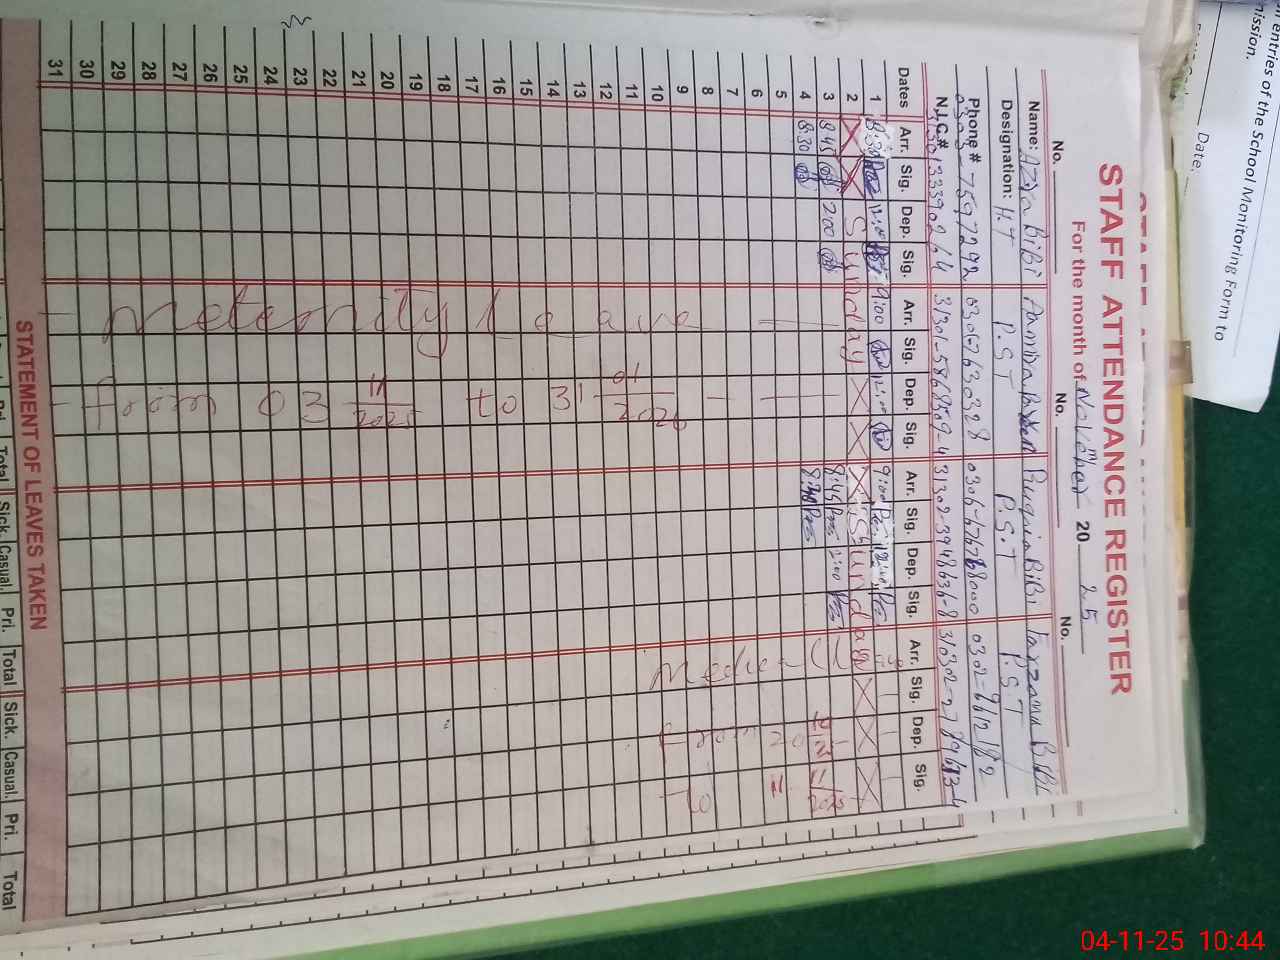 entries of the School Monitoring Form to
mission.
Date,
STAFF ATTENDANCE REGISTER
For the month of November 20 25
No. No. No.
Name: Aziza BiBi Ruquia BiBi BiBi
Designation: H.T P.S.T P.S.T P.S.T
Phone # 0303-7597292 03067630328 0306-676768000 0302-9612182
N.I.C.# 31301-5868509-4 31302-3948636-8
Dates Arr. Sig. Dep. Sig. Arr. Sig. Dep. Sig. Arr. Sig. Dep. Sig. Arr. Sig. Dep. Sig.
1 8:30 12:00 9:00 12:00 9:00 12:00
2 Sunday Sunday
3 8:45 2:00 8:45 2:00
4 8:30 8:30
5
6
7
8
9
10
11
12
13
14
15
16
17
18
19
20
21
22
23
24
25
26
27
28
29
30
31
Meternity leave
from 03 11/2025 to 31 01/2026
Medical
from 20 10/25
to 11 11/2025
STATEMENT OF LEAVES TAKEN
Pri. Total Sick. Casual. Pri. Total Sick. Casual. Pri. Total
04-11-25 10:44